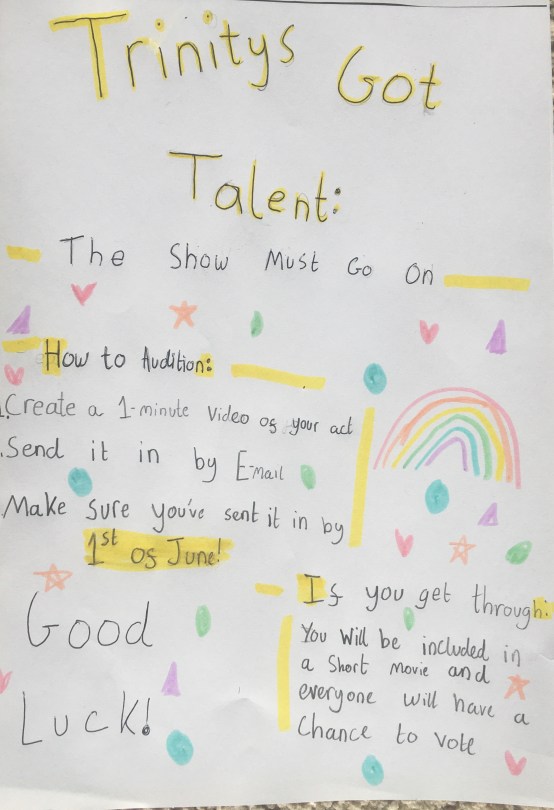 Trinitys Got
Talent:
The Show Must Go On
How to Audition:
1.Create a 1-minute Video of your act
.Send it in by E-mail
Make Sure you've sent it in by
1st of June!
Good
Luck!
If you get through:
You Will be included in
a Short movie and
everyone will have a
Chance to vote